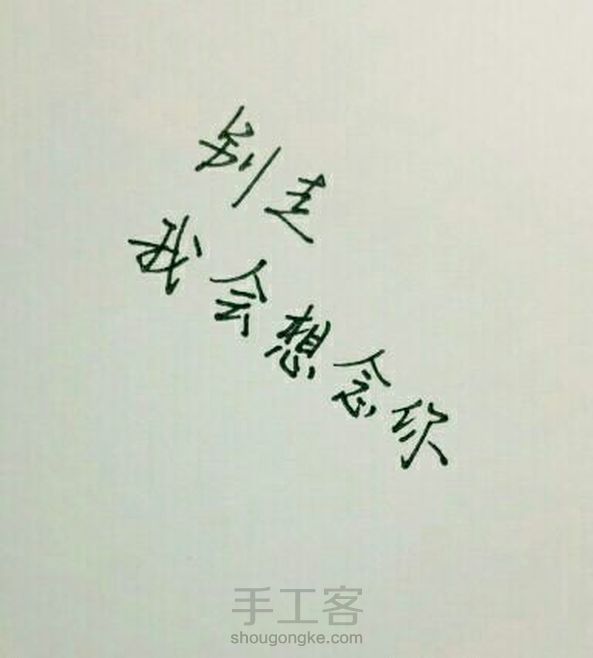 别走
我会想念你
手工客
shougongke.com